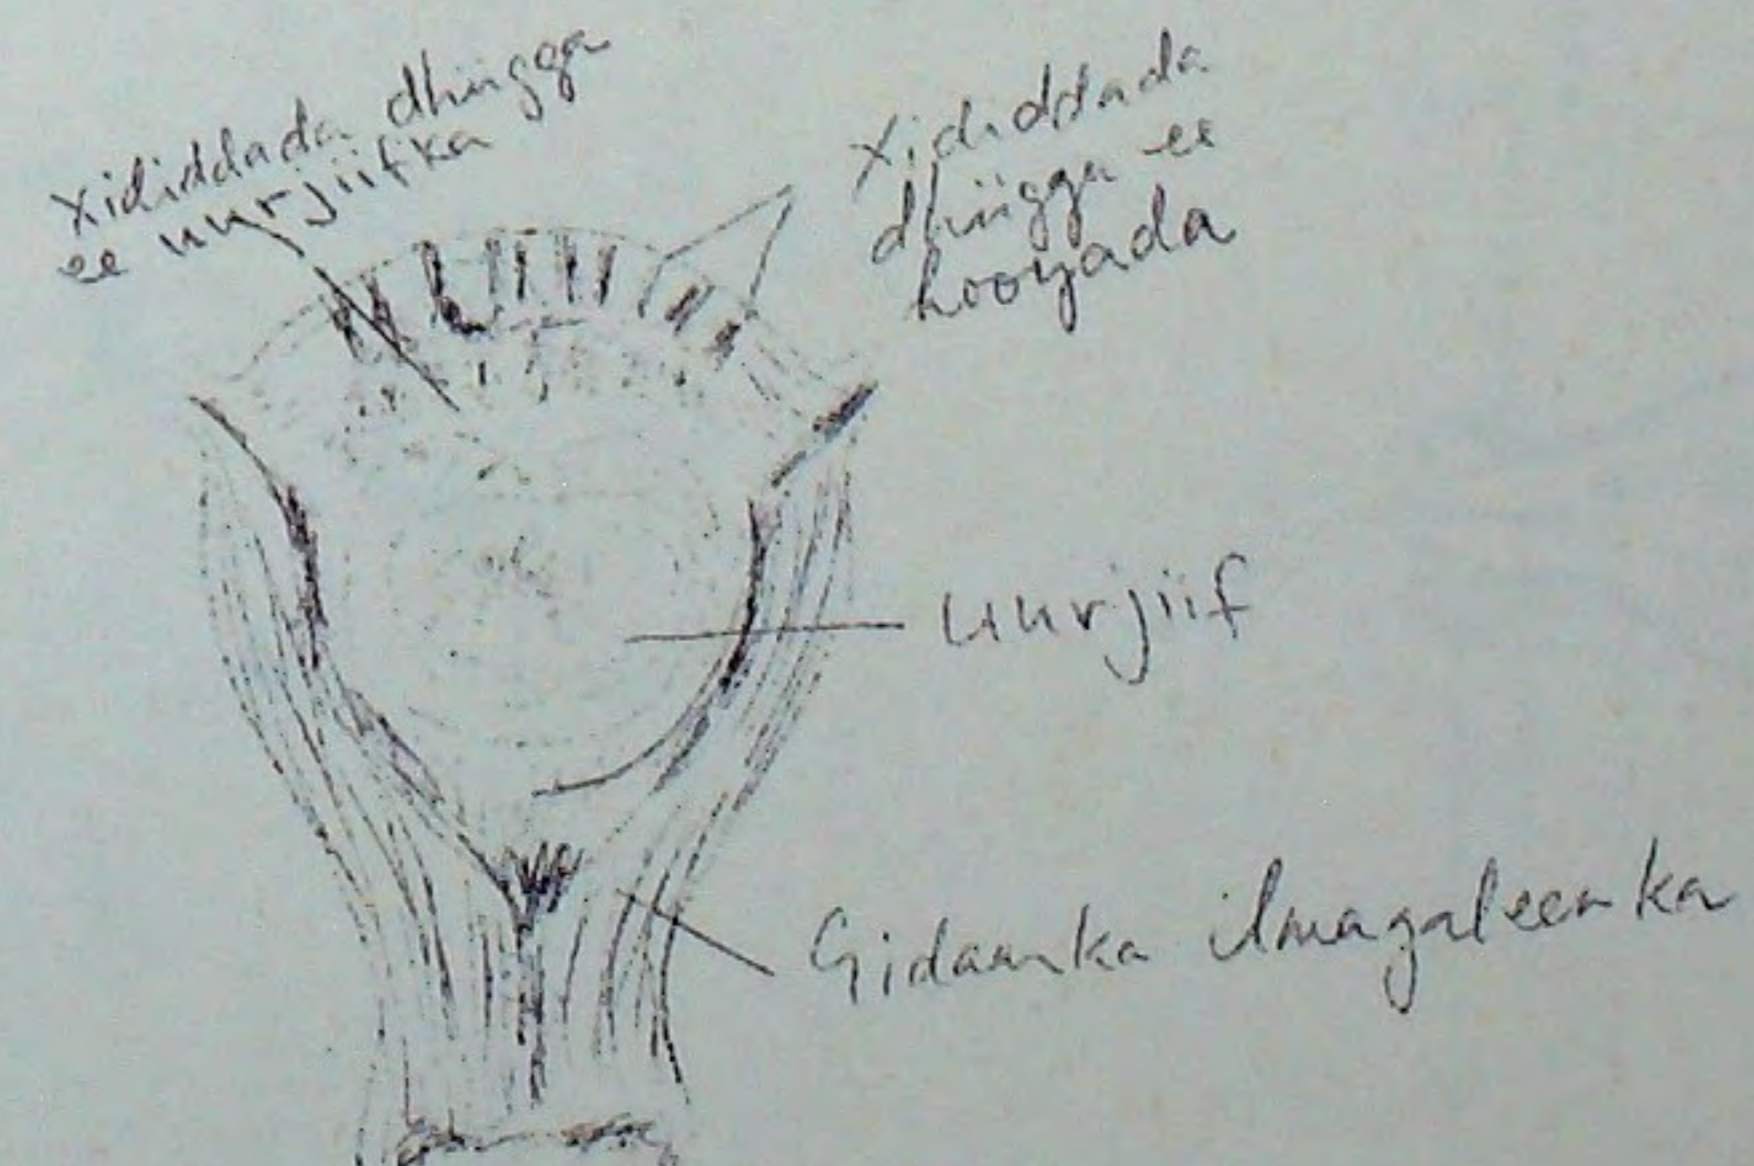 xididdada dhiigga
ee uurjiifka
xididdada
dhiigga ee
hooyada
uurjiif
Gidaarka ilmagaleenka